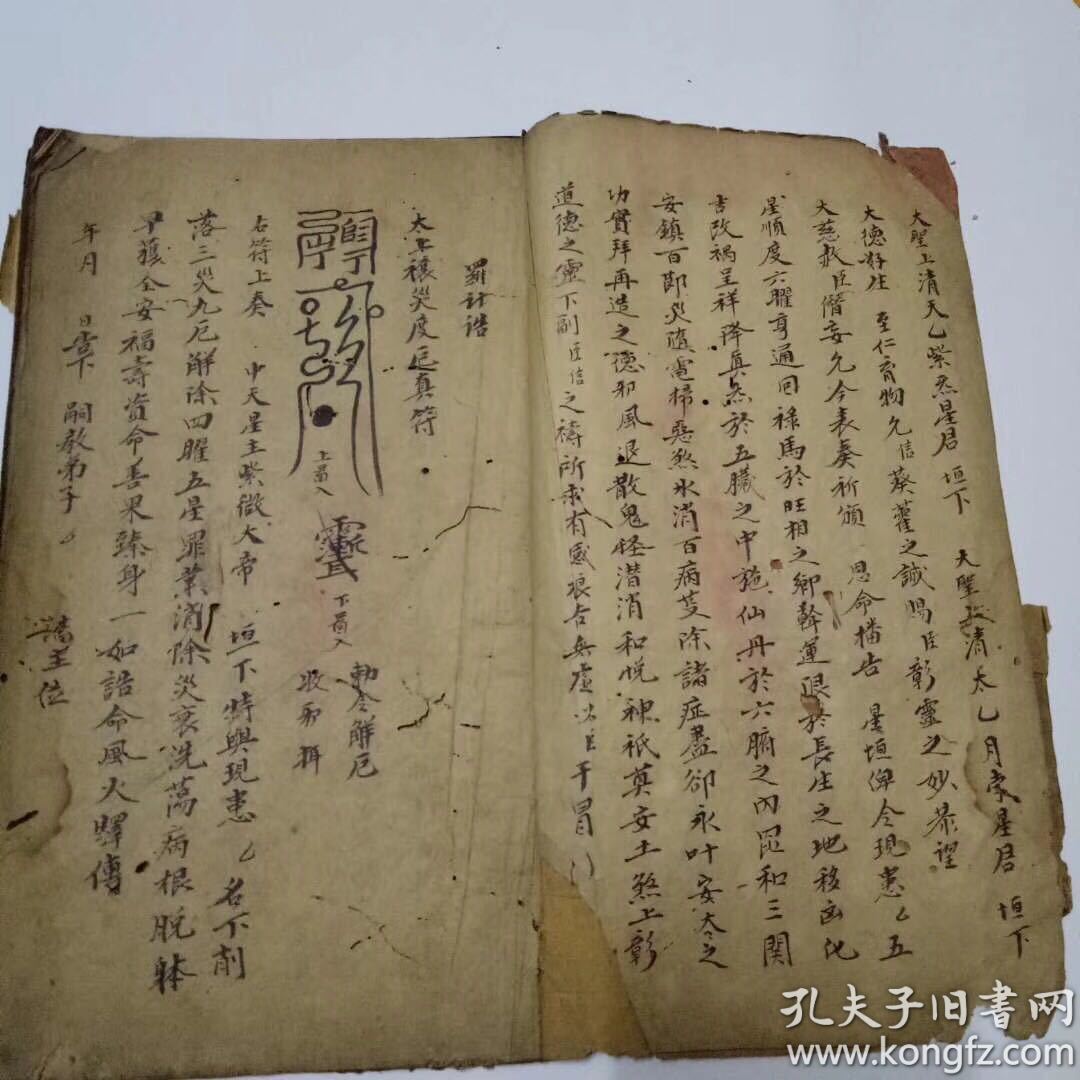 大聖上清天乙紫炁星君 垣下 大聖上清太乙月孛星君 垣下
大德好生 至仁育物允信葵藿之誠賜臣彰靈之妙恭望
大慈赦臣僭妄允今表奏祈頒 恩命播告 星垣俾令現患厶五
星順度六曜亨通回祿馬於旺相之鄉斡運限於長生之地移凶化
吉改禍呈祥降真炁於五臟之中施仙丹於六腑之內 和三關
安鎮百節災隨電掃惡煞氷消百病蔓除諸症盡卻永叶安泰之
功實拜再造之德邪風退散鬼怪潛消和悅神祇奠安土煞上彰
道德之靈下副臣信之禱所求有感 無虛 臣干冒
羅計誥
太上禳災度厄真符
上 入
下 入
勅令解厄
右符上奏 中天星主紫微大帝 垣下特與現患厶名下削
落三災九厄解除四曜五星罪業消除災衰洗蕩病根脫体
早獲全安福壽資命善果臻身一如誥命風火驛傳
年月 日 下 嗣教弟子厶
位
孔夫子旧书网
www.kongfz.com